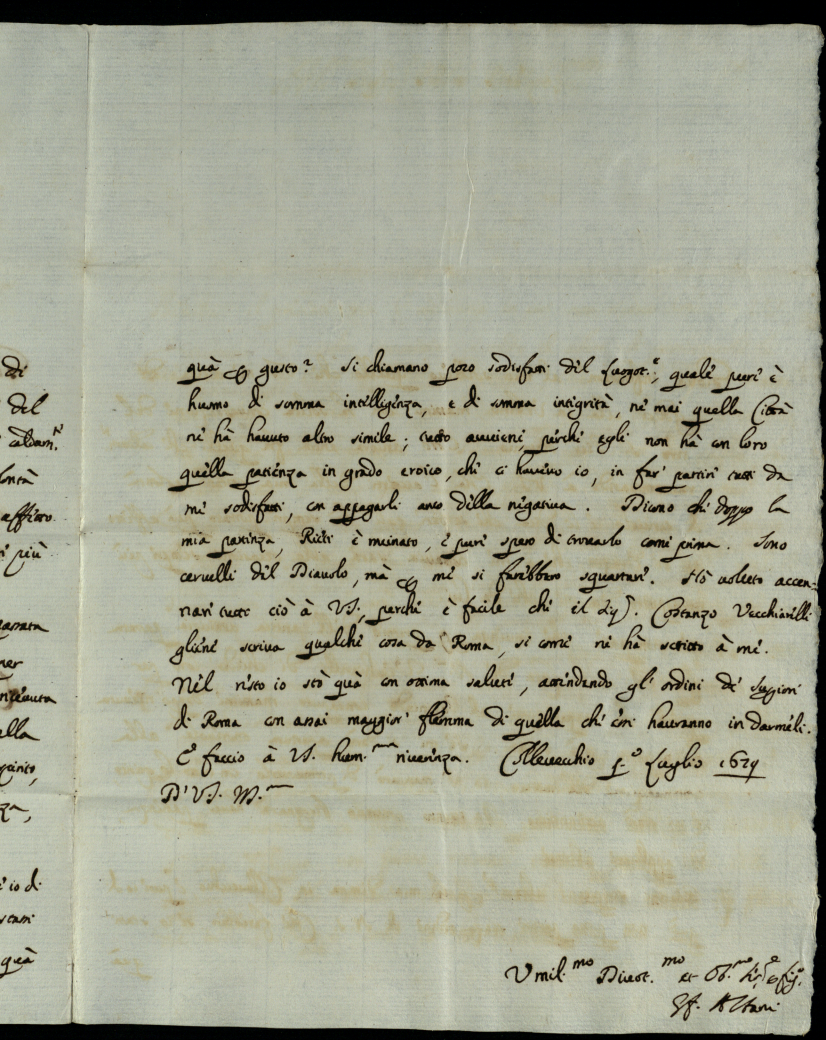 di
del
più
ella
io di
quà
quà per gusto? Si chiamano poco sodisfatti del Luogot.e, quale pure è
huomo di somma intelligenza, e di somma integrità, nè mai quella Città
ne hà hauuto altro simile; tutto auuiene, perche egli non hà con loro
quella patienza in grado eroico, che ci haueuo io, in far' partire tutti da
me sodisfatti, con appagarli anco della negatiua. Dicono che doppo la
mia partenza, Rieti è ruinato, e pure spero di trouarlo come prima. Sono
ceruelli del Diauolo, mà per me si farebbero squartare. Hò voluto accen-
nare tutto ciò à VS., perche è facile che il Sig.r Costanzo Vecchiarelli
gliene scriua qualche cosa da Roma, si come ne hà scritto à me.
Nel resto io stò quà con ottima salute, attendendo gl' ordini de' Superiori
di Roma con assai maggior' flemma di quella che essi haueranno in darmeli.
E faccio à VS. hum.ma riuerenza. Colleuecchio p.o Luglio 1679
D' VS. M.
Vmil.mo Diuot.mo et Ob.mo